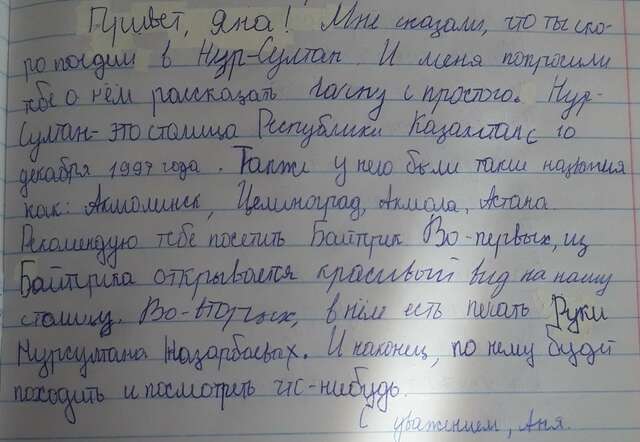 Привет, Яна! Мне сказали, что ты ско-
ро поедеш в Нур-Султан. И меня попросили
тебе о нём рассказать Начну с простого. Нур-
Султан- это столица Республики Казахстан с 10
декабря 1997 года. Также у него были такие названия
как: Акмолинск, Целиноград, Акмола, Астана.
Рекомендую тебе посетить Байтерек Во-первых, из
Байтерика открывается красивый вид на нашу
столицу. Во-вторых, в нём есть печать Руки
Нурсултана Назарбаева. И наконец, по нему будеш
походить и посмотреть что-нибудь.
С уважением, Аня.